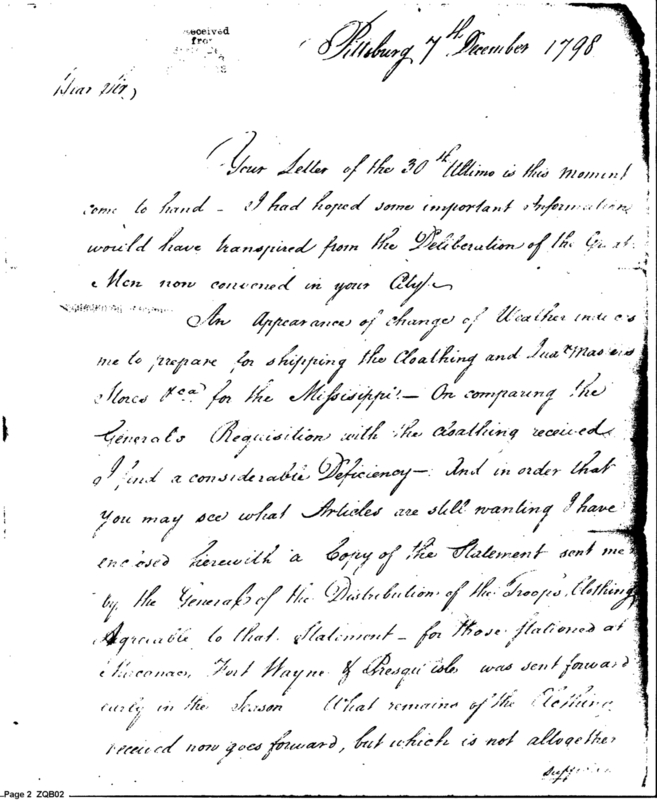 received
from
Pittsburg 7th December 1798
Dear Sir,
Your Letter of the 30th Ultimo is this moment
come to hand – I had hoped some important Information
would have transpired from the Deliberation of the Great
Men now convened in your City –
An Appearance of change of Weather induces
me to prepare for shipping the Cloathing and Quar Masters
Stores &ca for the Missisippi – On comparing the
General's Requisition with the Cloathing received
I find a considerable Deficiency – And in order that
You may see what Articles are still wanting I have
enclosed herewith a Copy of the Statement sent me
by the General of the Distribution of the Troops Clothing
Agreable to that Statement – for those stationed at
Fort Wayne & Presqu'isle was sent forward
early in the Season What remains of the Clothing
received now goes forward, but which is not altogether
Page 2 ZQB02